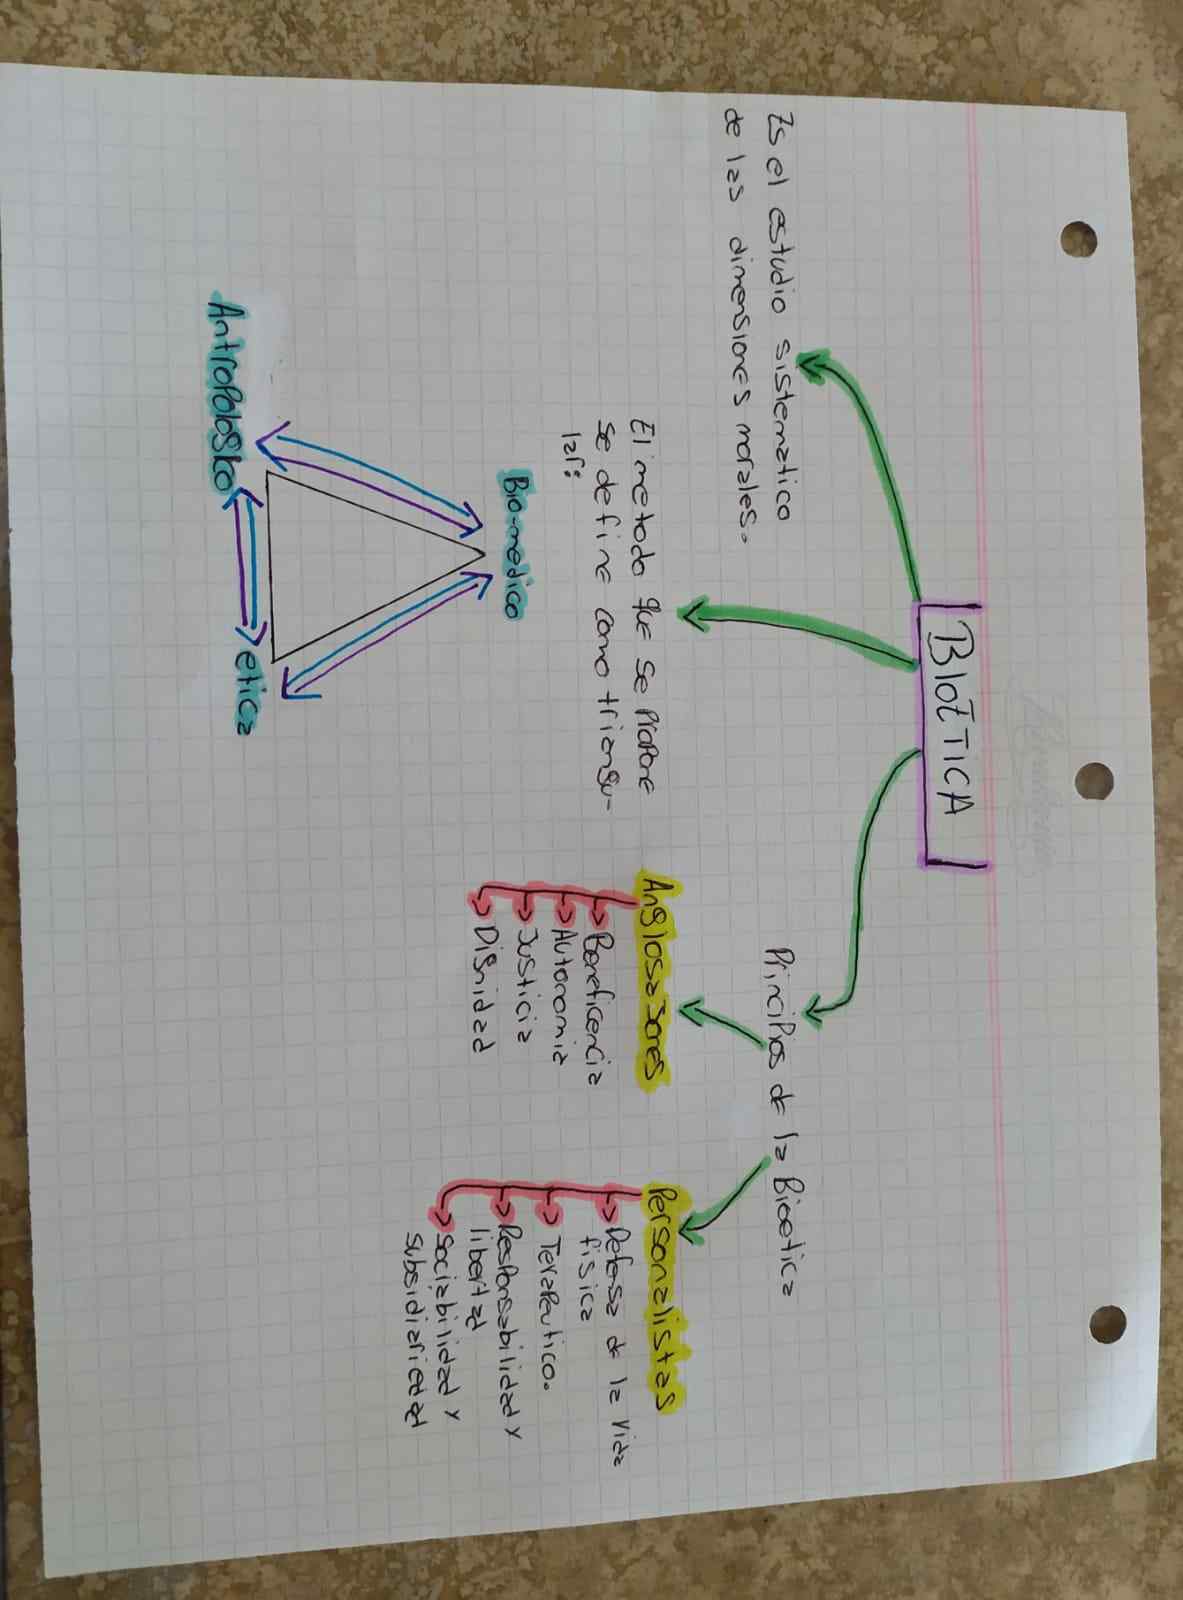 BIOÉTICA
Es el estudio sistematico
de las dimensiones morales.
El metodo que se propone
se define como triangu-
lar:
Bio-medico
Antropologico
etica
Principios de la Bioetica
Anglosajones
Beneficencia
Autonomia
Justicia
Dignidad
Personalistas
Defensa de la vida
fisica
Terapeutico.
Responsabilidad y
libertad
Sociabilidad y
subsidiariedad